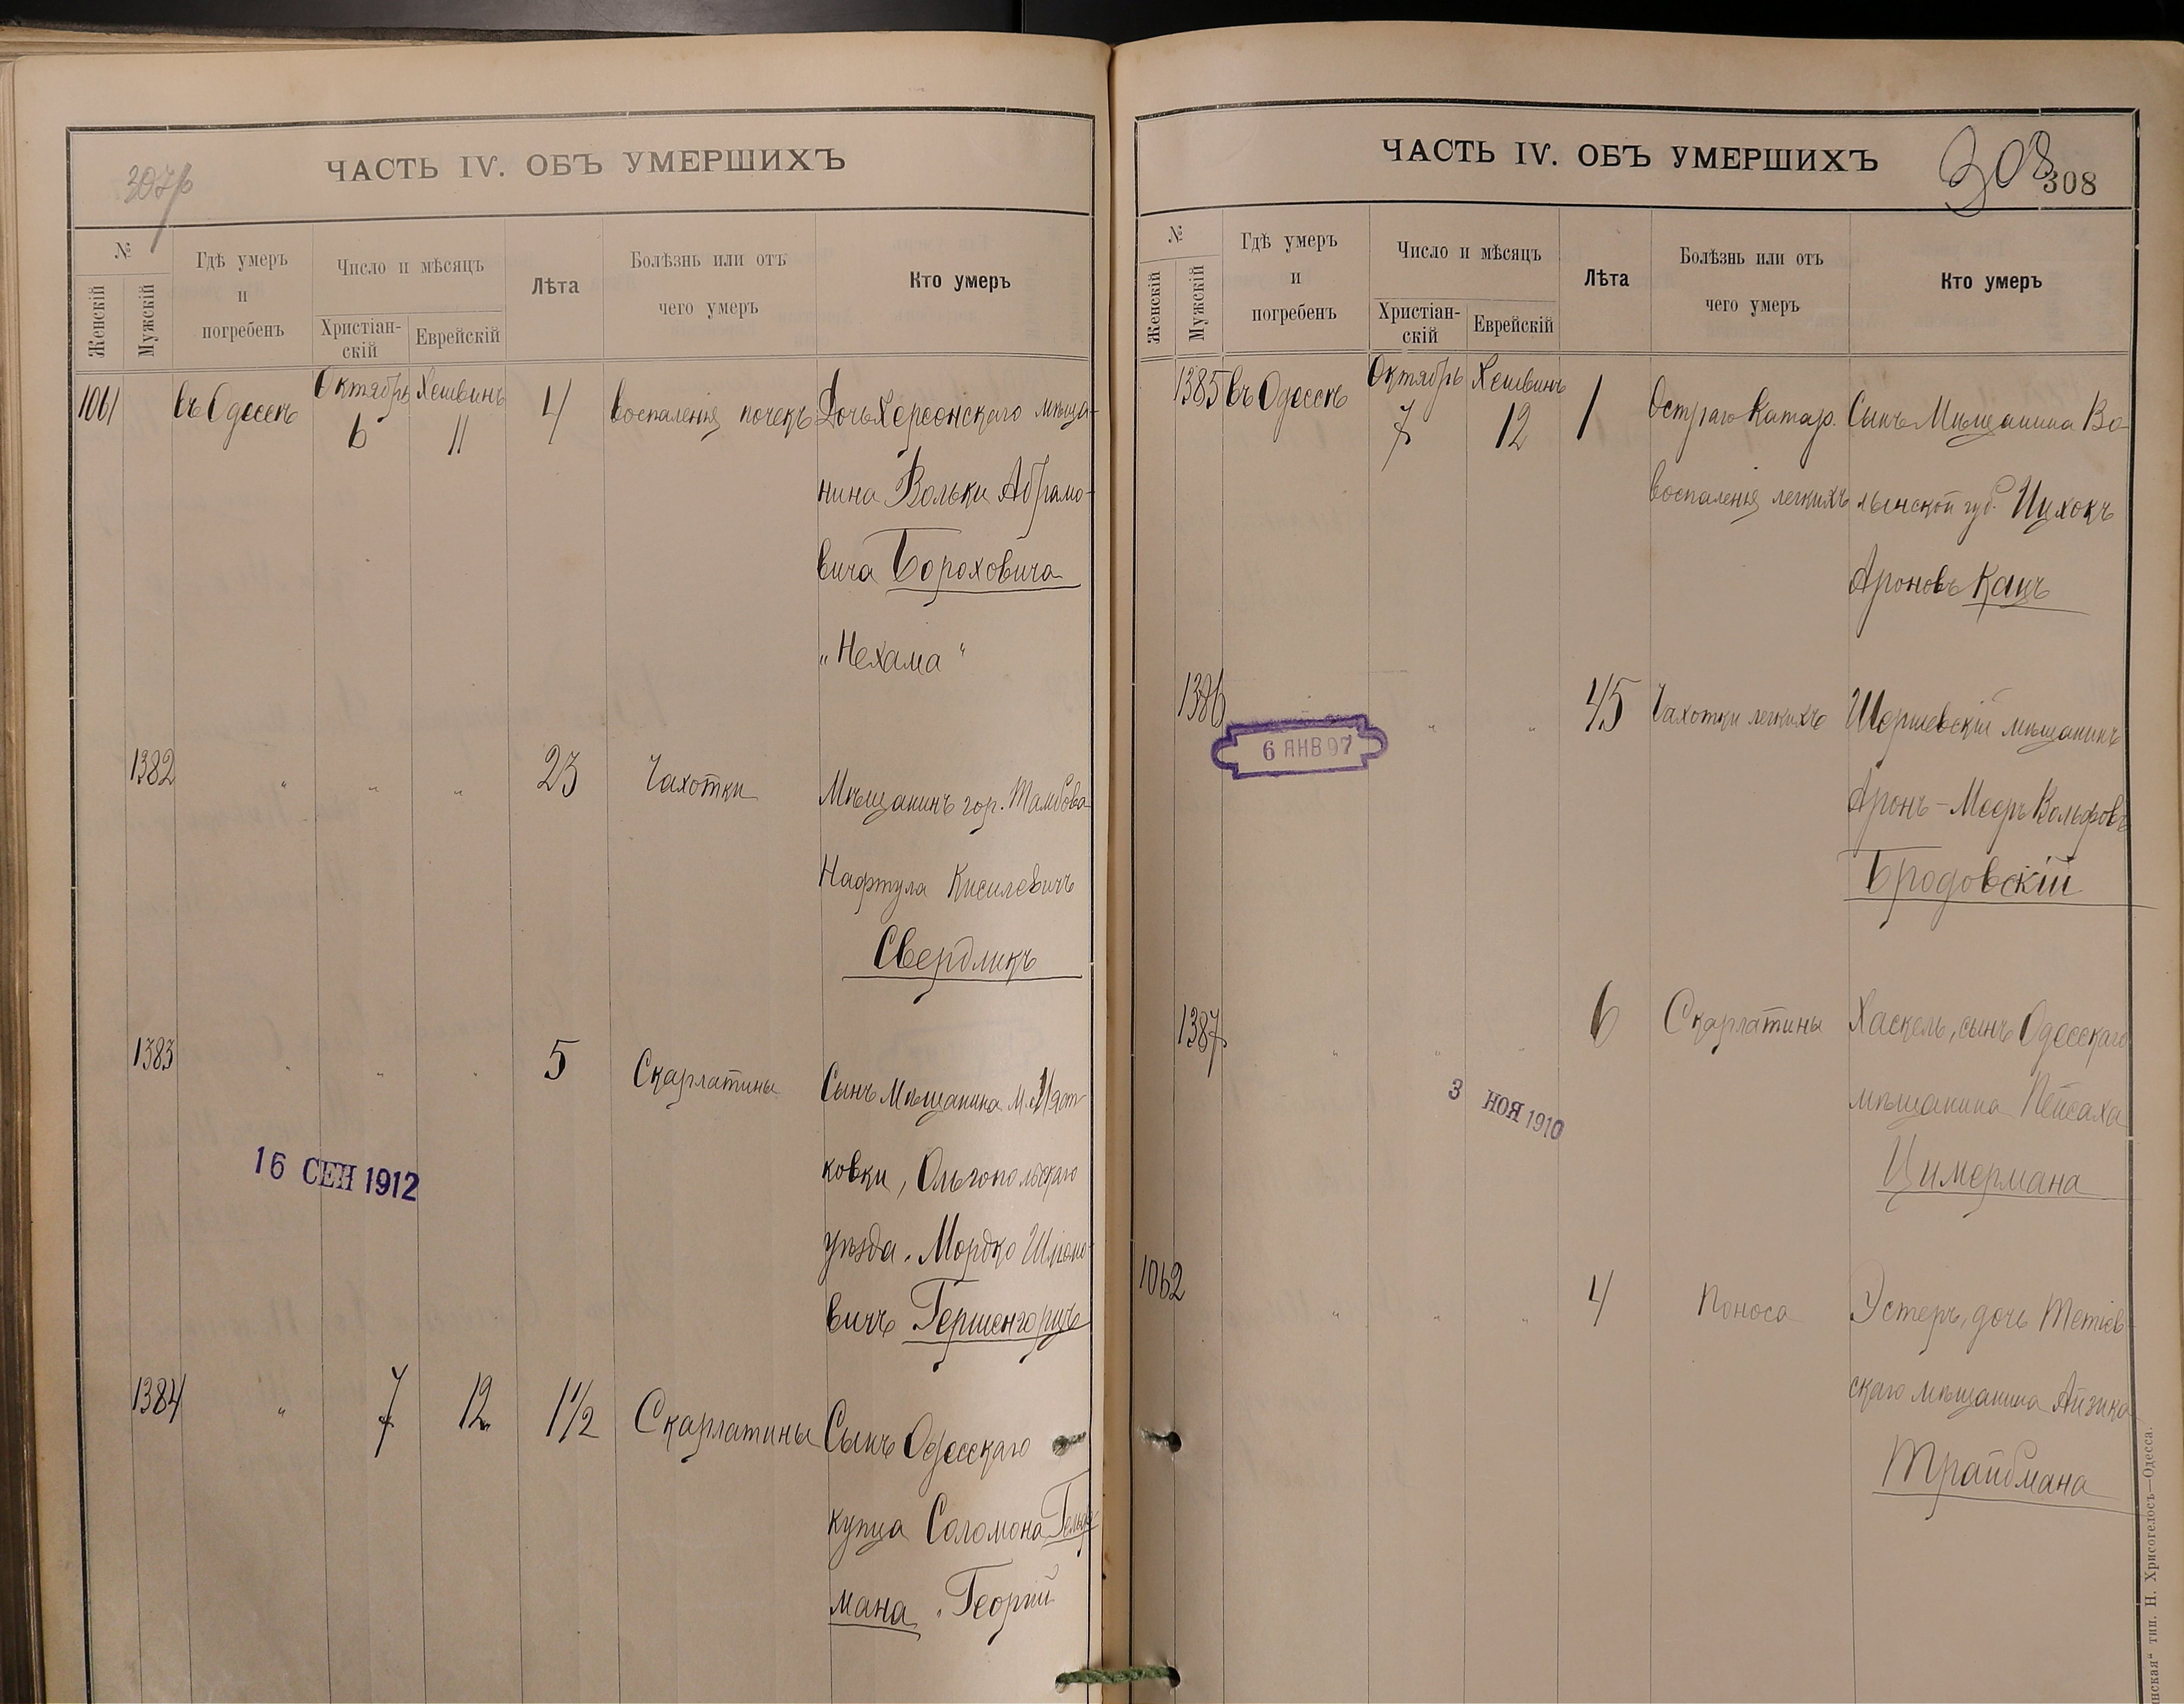 307/р
ЧАСТЬ IV. ОБЪ УМЕРШИХЪ
№
Женскій
Мужскій
Гдѣ умеръ
и
погребенъ
Число и мѣсяцъ
Христіан-
скій
Еврейскій
Лѣта
Болѣзнь или отъ
чего умеръ
Кто умеръ
1061 въ Одессѣ Октябрь 6 Хешвинъ 11 4 воспаленія почекъ Дочь Херсонскаго мѣща-
нина Вольки Абрамо-
вича Бороховича
„Нехама“
1382 " " " 23 Чахотки Мѣщанинъ гор. Тамбова
Нафтула Кисилевичъ
Свердликъ
1383 " " " 5 Скарлатины Сынъ Мѣщанина м. Мяст
ковки, Ольгопольскаго
уѣзда. Мордко Шломо-
вичъ Гершенгорцъ
16 СЕН 1912
1384 " 7 12 1 1/2 Скарлатины Сынъ Одесскаго
купца Соломона
мана „Георгій
ЧАСТЬ IV. ОБЪ УМЕРШИХЪ
308
308
№
Женскій
Мужскій
Гдѣ умеръ
и
погребенъ
Число и мѣсяцъ
Христіан-
скій
Еврейскій
Лѣта
Болѣзнь или отъ
чего умеръ
Кто умеръ
1385 въ Одессѣ Октябрь 7 Хешвинъ 12 1 Остраго катар. Сынъ Мѣщанина Во-
воспаленія легкихъ лынской губ. Ицхокъ
Ароновъ Кацъ
1386 " " 45 Чахотки легкихъ Шершевскій мѣщанинъ
6 ЯНВ 97
Аронъ-Мееръ Вольфовъ
Бродовскій
1387 " " " 6 Скарлатины Хаскель, сынъ Одесскаго
3 НОЯ 1910
мѣщанина Пейсаха
Цимермана
1062 " " " 4 Поноса Эстеръ, дочь Тетіев-
скаго мѣщанина Айзика
Трайбмана
нская“ тип. Н. Хрисогелосъ—Одесса.